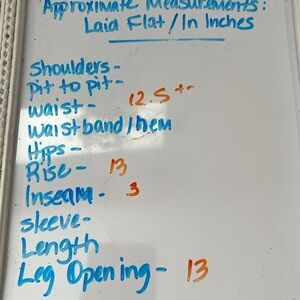 Approximate Measurements:
Laid Flat / In Inches
Shoulders -
pit to pit -
waist - 12.5 +-
waistband/hem
Hips -
Rise - 13
Inseam - 3
sleeve -
Length
Leg Opening - 13